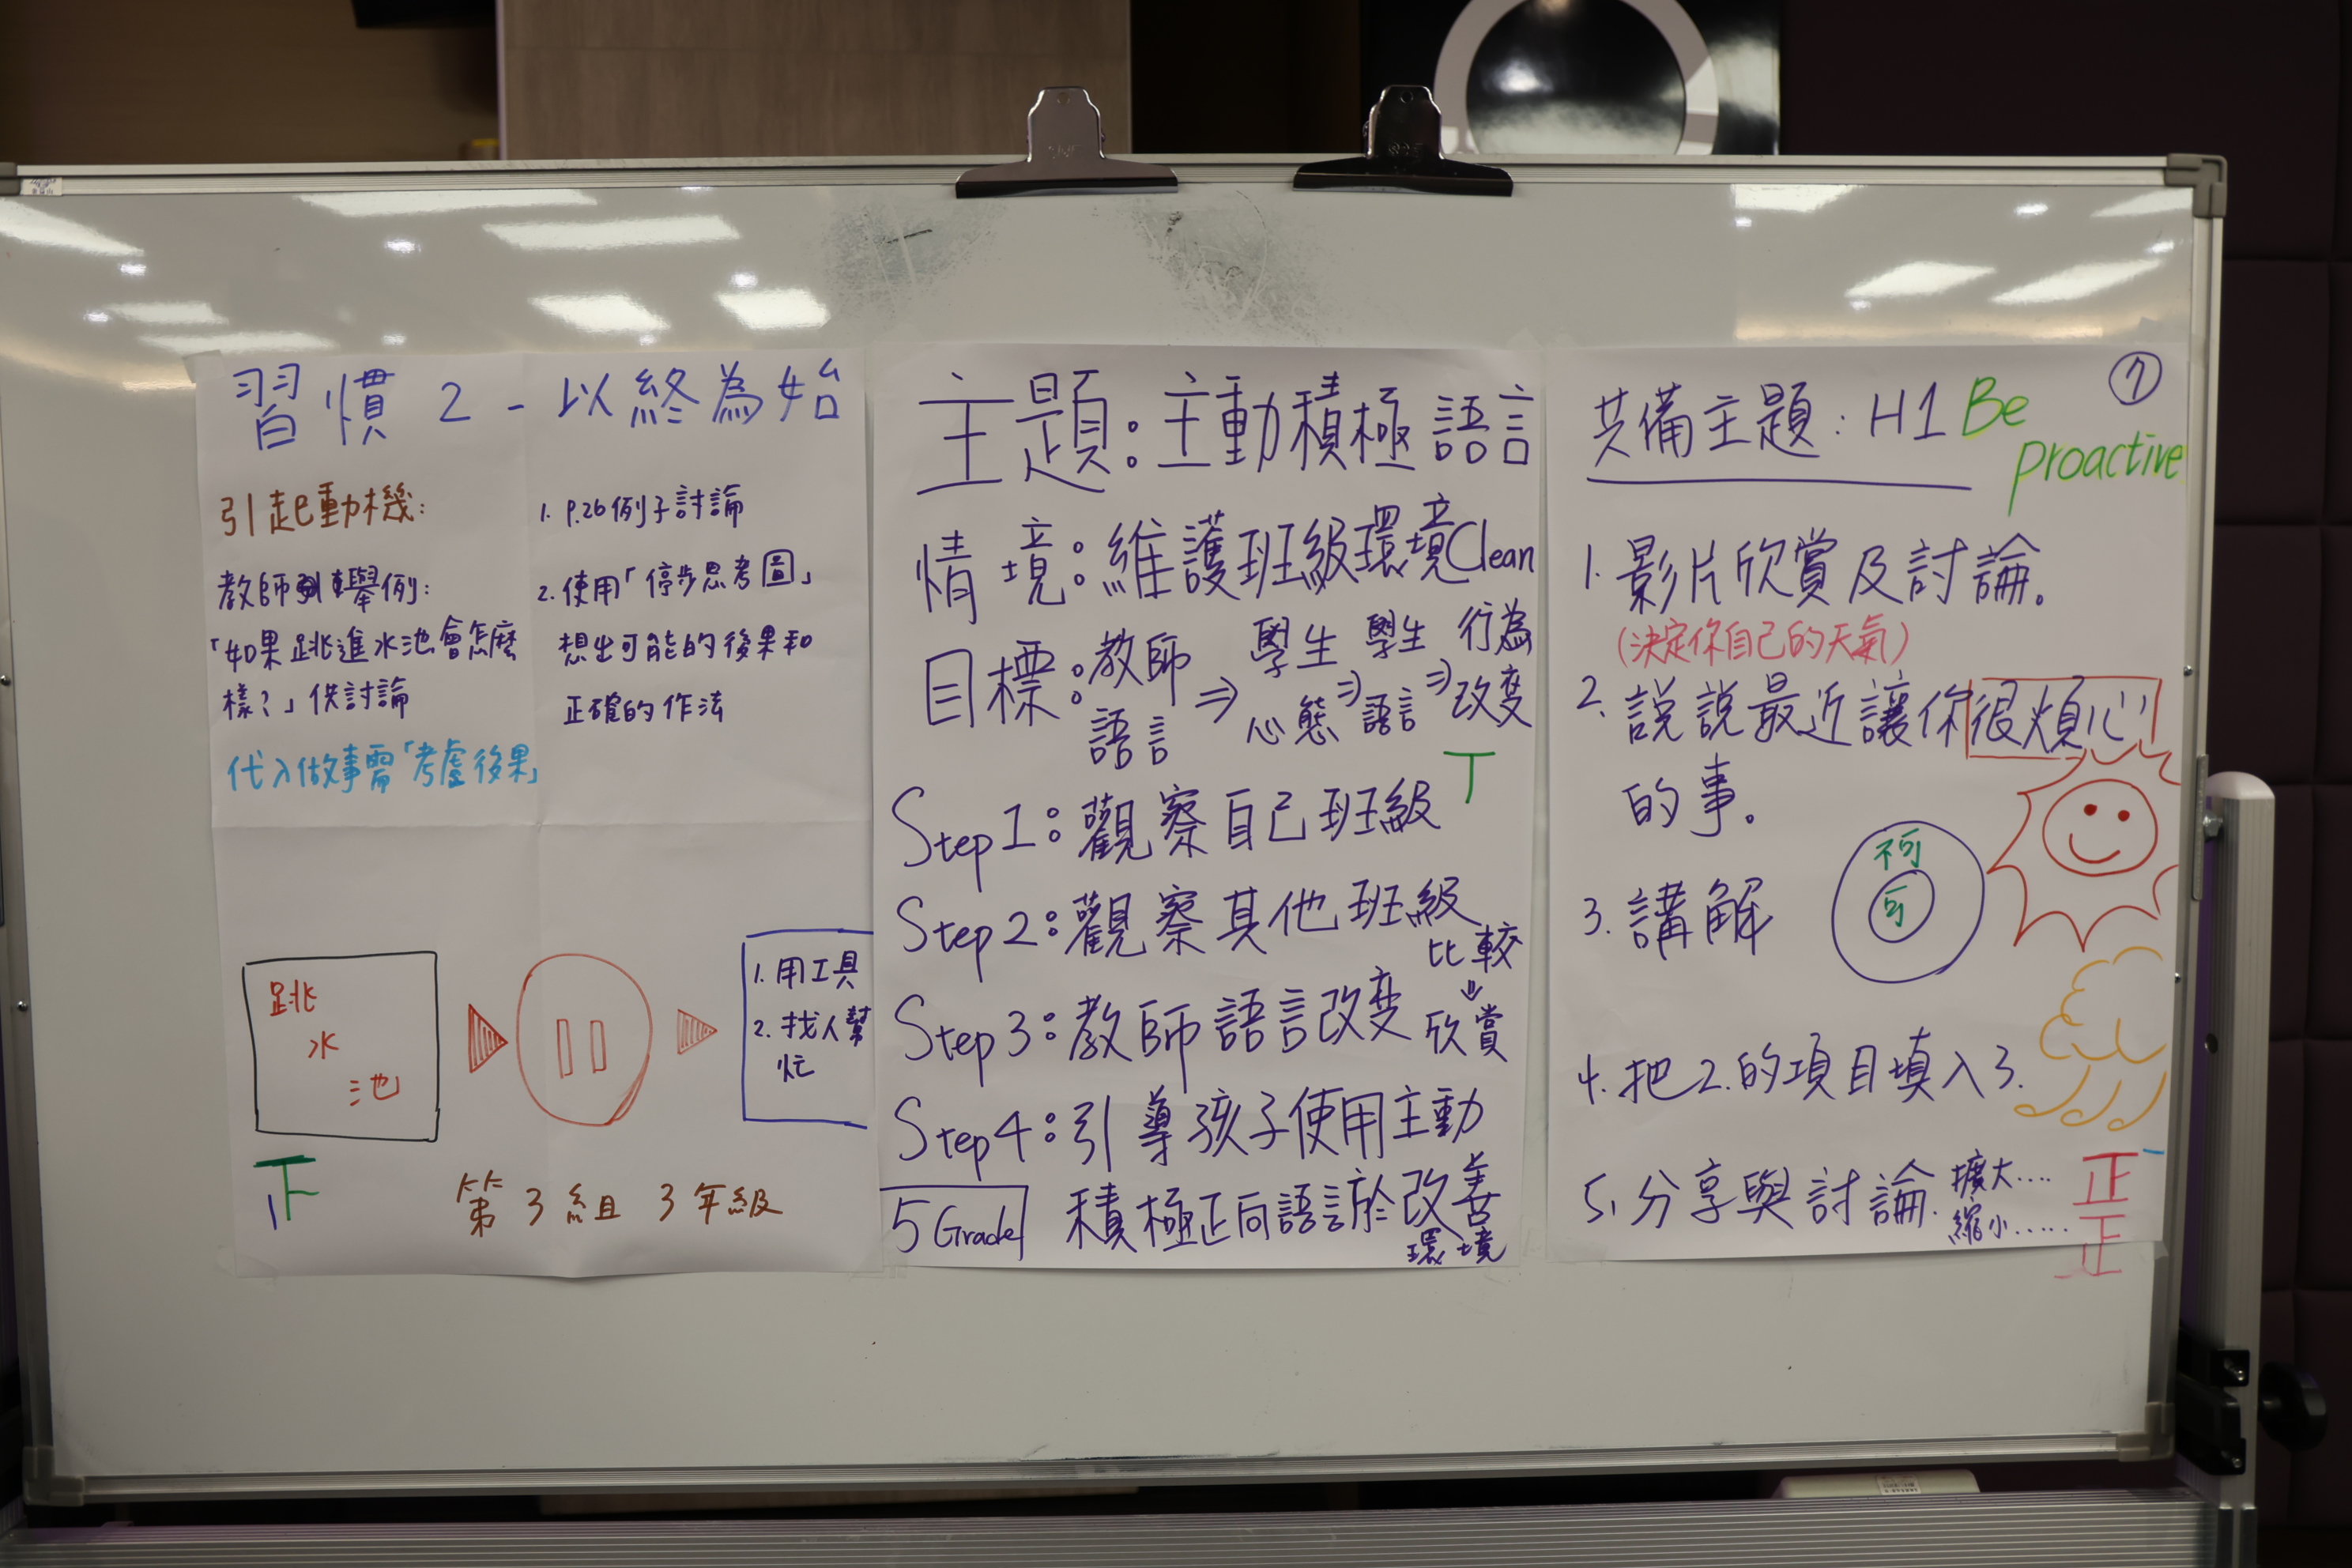 習慣2-以終為始
引起動機:
教師舉例:
「如果跳進水池會怎麼
樣?」供討論
代入做事需「考慮後果」
1. P.26例子討論
2. 使用「停步思考圖」
想出可能的後果和
正確的作法
跳
水
池
1. 用工具
2. 找人幫
忙
第3組 3年級
主題:主動積極語言
情境:維護班級環境Clean
目標:教師語言⇒學生心態⇒學生語言⇒行為改變
Step1:觀察自己班級
Step2:觀察其他班級
比較
⇓
欣賞
Step3:教師語言改變
Step4:引導孩子使用主動
積極正向語言於改善
環境
5 Grade
⑦
共備主題:H1 Be
proactive
1. 影片欣賞及討論。
(決定你自己的天氣)
2. 説説最近讓你很煩心
的事。
3. 講解
不可
可
4. 把2.的項目填入3.
5. 分享與討論.
擴大....
縮小.....
正
正